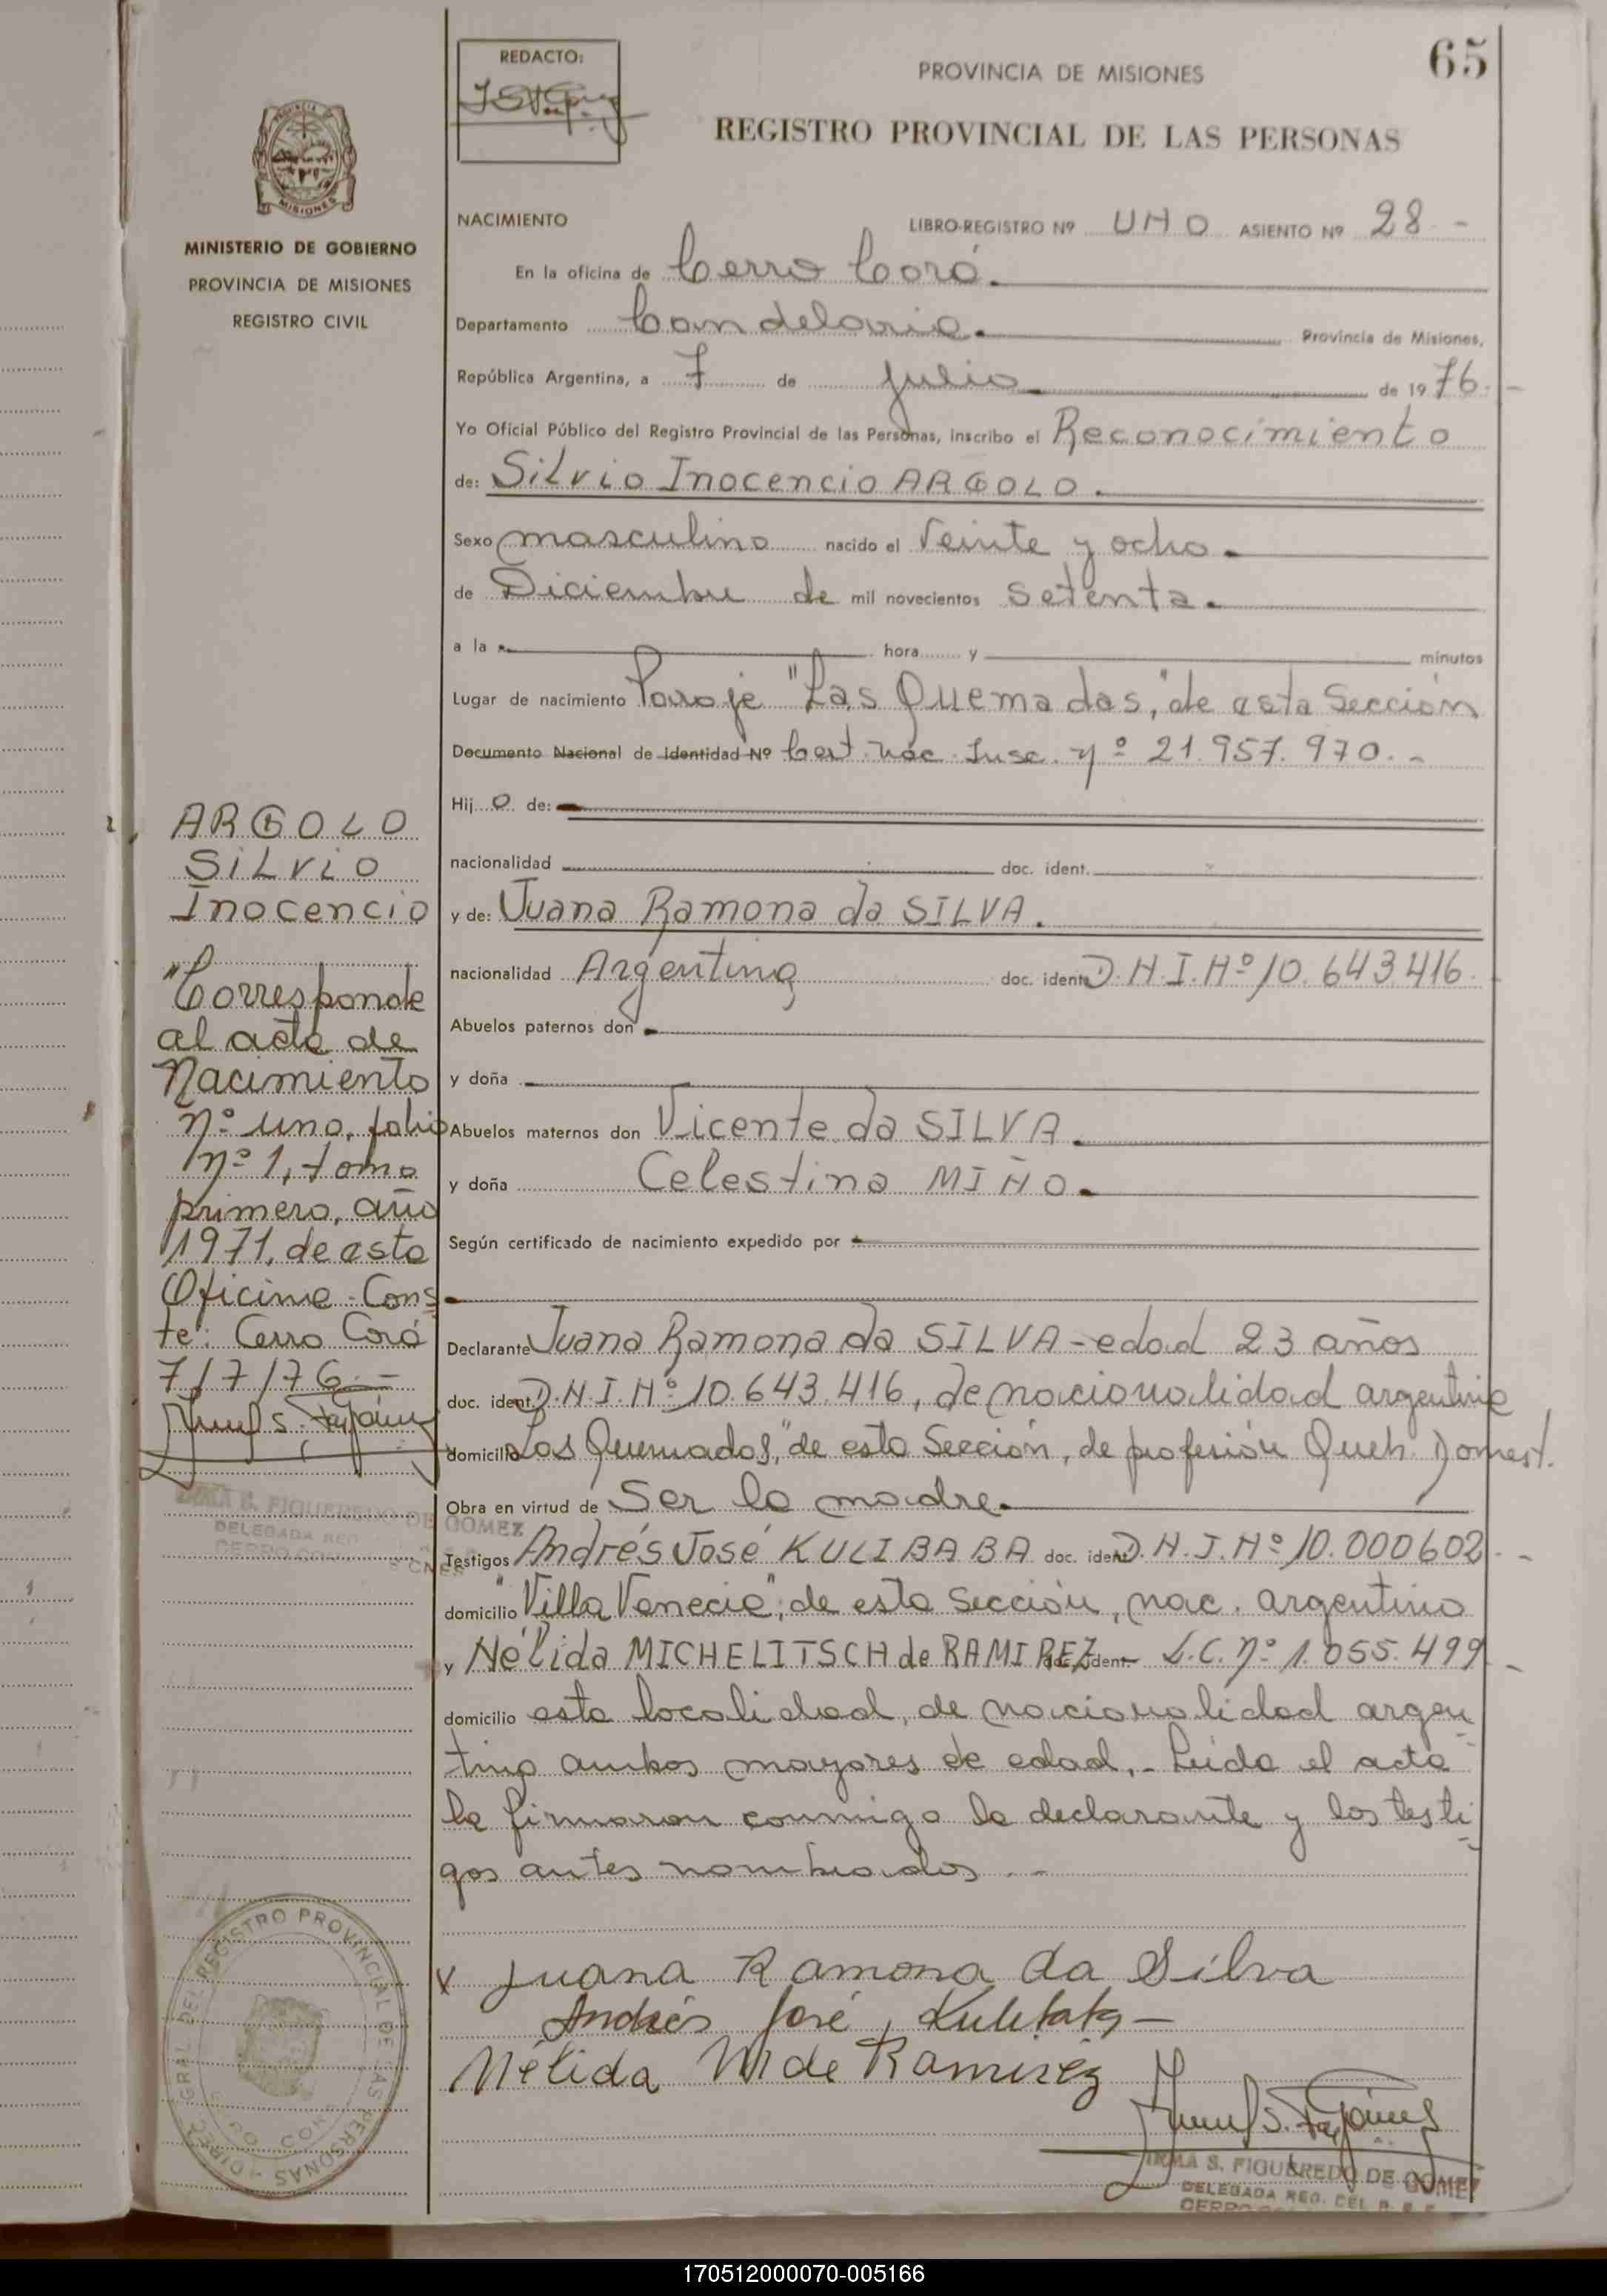 65
REDACTO:
PROVINCIA DE MISIONES
REGISTRO PROVINCIAL DE LAS PERSONAS
PROVINCIA DE
MISIONES
MINISTERIO DE GOBIERNO
PROVINCIA DE MISIONES
REGISTRO CIVIL
NACIMIENTO LIBRO-REGISTRO Nº UNO ASIENTO Nº 28-
En la oficina de Cerro Corá.
Departamento Candelaria. Provincia de Misiones,
República Argentina, a 7 de julio de 1976.-
Yo Oficial Público del Registro Provincial de las Personas, inscribo el Reconocimiento
de: Silvio Inocencio ARGOLO.
Sexo masculino nacido el Veinte y ocho.
de Diciembre de mil novecientos Setenta.
a la hora y minutos
Lugar de nacimiento Paraje "Las Quemadas," de esta Sección
Documento Nacional de Identidad Nº Cert. Nac. Insc. nº 21.957.970.-
Hijo de:
nacionalidad doc. ident.
y de: Juana Ramona da SILVA.
nacionalidad Argentina doc. ident. D.N.I.Nº 10.643.416.
Abuelos paternos don
y doña
Abuelos maternos don Vicente da SILVA.
y doña Celestina MIÑO.
Según certificado de nacimiento expedido por
Declarante Juana Ramona da SILVA - edad 23 años
doc. ident. D.N.I.Nº 10.643.416, de nacionalidad argentina
domicilio Las Quemadas," de esta Sección, de profesión Queh. Domest.
Obra en virtud de Ser la madre.
Testigos Andrés José KULIBABA doc. ident. D.N.I.Nº 10.000602.-
domicilio "Villa Venecia", de esta Sección, nac. argentino
y Nélida MICHELITSCH de RAMIREZ doc. ident. L.C. nº 1.055.499.-
domicilio esta localidad, de nacionalidad argen
tina ambos mayores de edad.- Leida el acta
la firmaron conmigo la declarante y los testi
gos antes nombrados.-
x Juana Ramona da Silva
Andrés José
Nélida M de Ramirez
IRMA S. FIGUEREDO DE GOMEZ
DELEGADA REG. DEL P. S. P.
CERRO
ARGOLO
SILVIO
Inocencio
"Corresponde
al acta de
Nacimiento
nº uno, folio
nº 1, tomo
primero, año
1971, de esta
Oficina - Cons
te: Cerro Corá
7/7/76.-
IRMA S. FIGUEREDO DE GOMEZ
DELEGADA REG.
CERRO CORA
DIREC. GRAL. DEL REGISTRO PROVINCIAL DE LAS PERSONAS
CERRO CORA
170512000070-005166